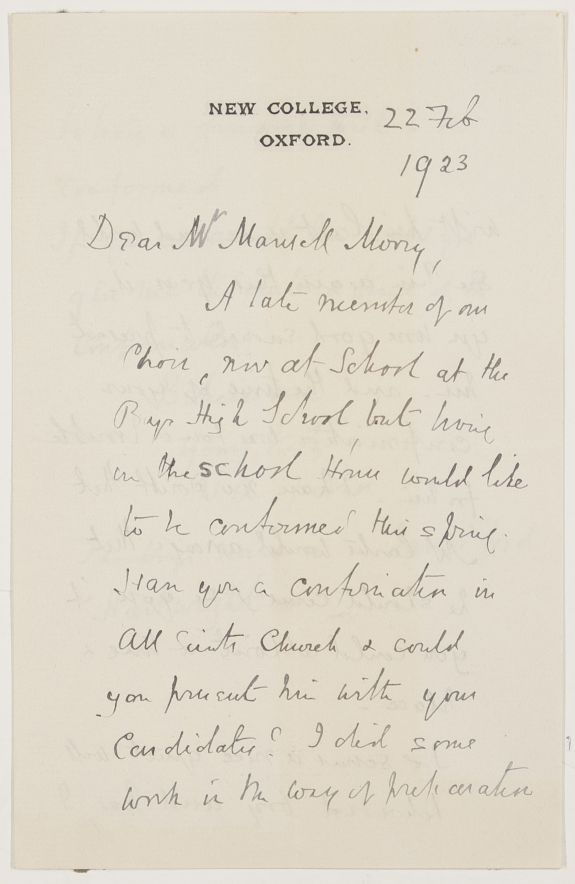 NEW COLLEGE,
OXFORD.
22 Feb
1923
Dear Mr Mansell Merry,
A late member of our
Choir, now at School at the
Boys High School, but living
in the School House would like
to be confirmed this spring.
Have you a confirmation in
All Saints Church & could
you present him with your
Candidates? I did some
work in the way of preparation